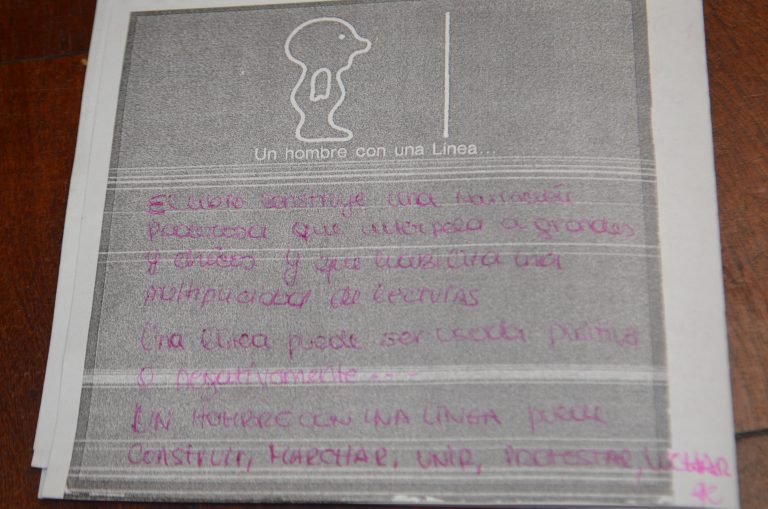 Un hombre con una Línea...
El libro construye una narración
poderosa que interpela a grandes
y chicos y que habilita una
multiplicidad de lecturas
Una línea puede ser usada positiva
o negativamente....
UN HOMBRE CON UNA LINEA puede
CONSTRUIR, MARCHAR, UNIR, PROTESTAR, LUCHAR